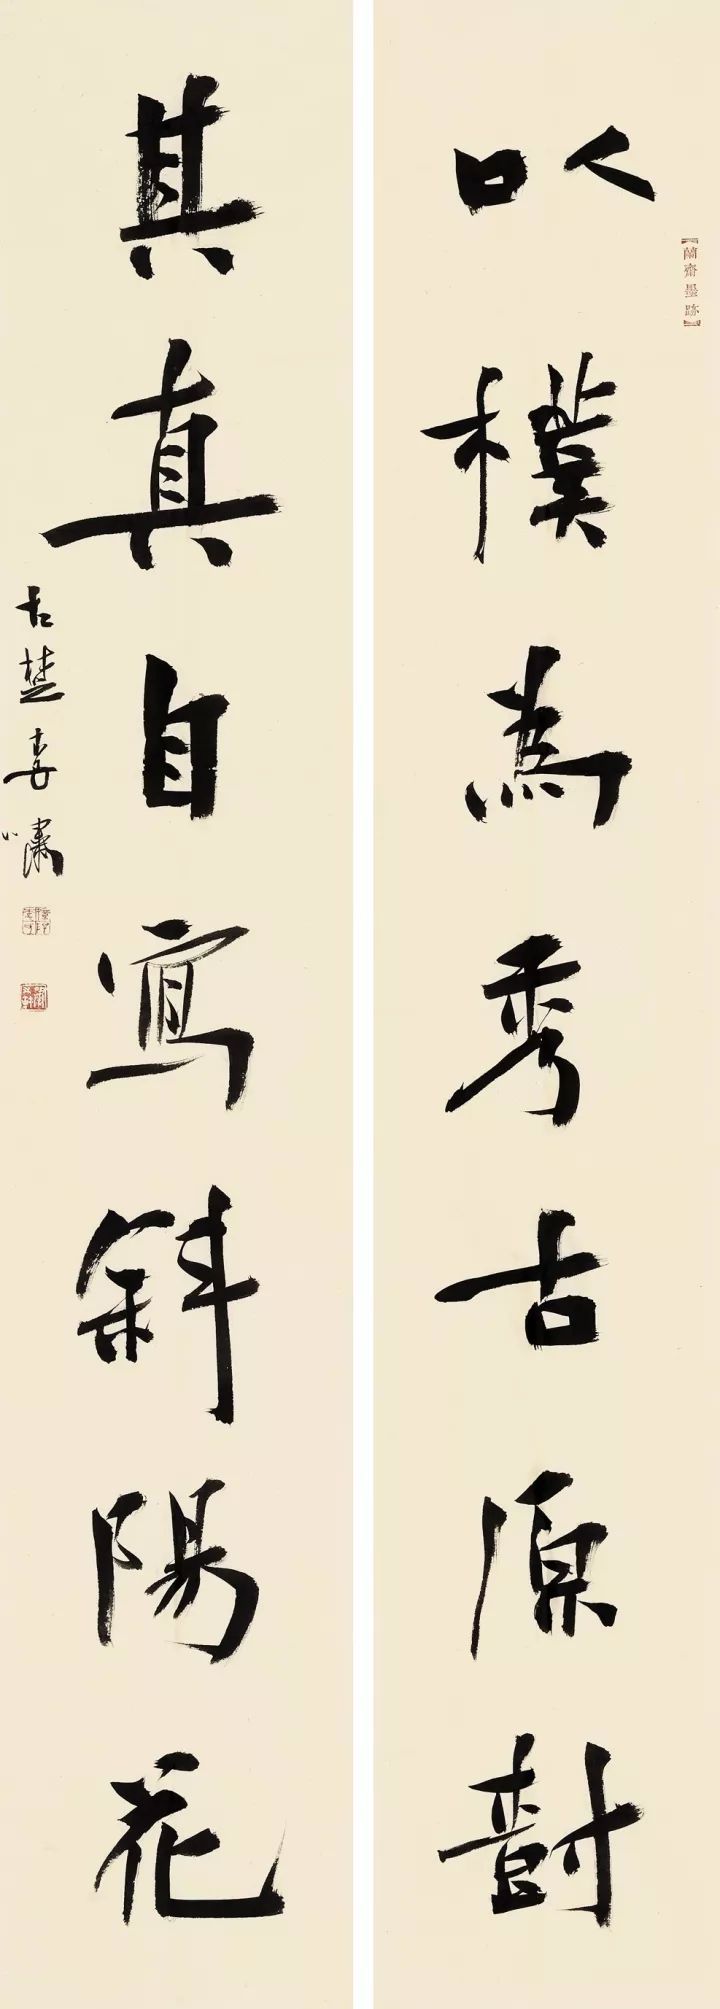 以樸為秀古原樹
蘭齋墨跡
其真自寫斜陽花
古楚李嘯